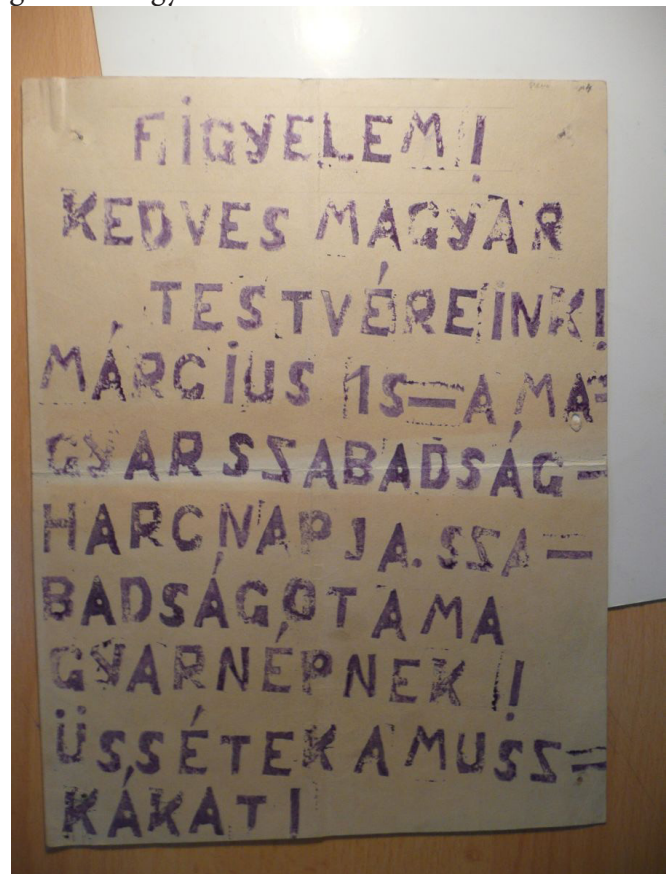 FİGYELEM!
KEDVES MAGYAR
TESTVÉREİNK!
MÁRCİUS 15=A MA=
GYAR SZABADSÁG-
HARC NAPJA. SZA-
BADSÁGOT A MA
GYARNÉPNEK!
ÜSSÉTEK A MUSSZ=
KÁKAT!